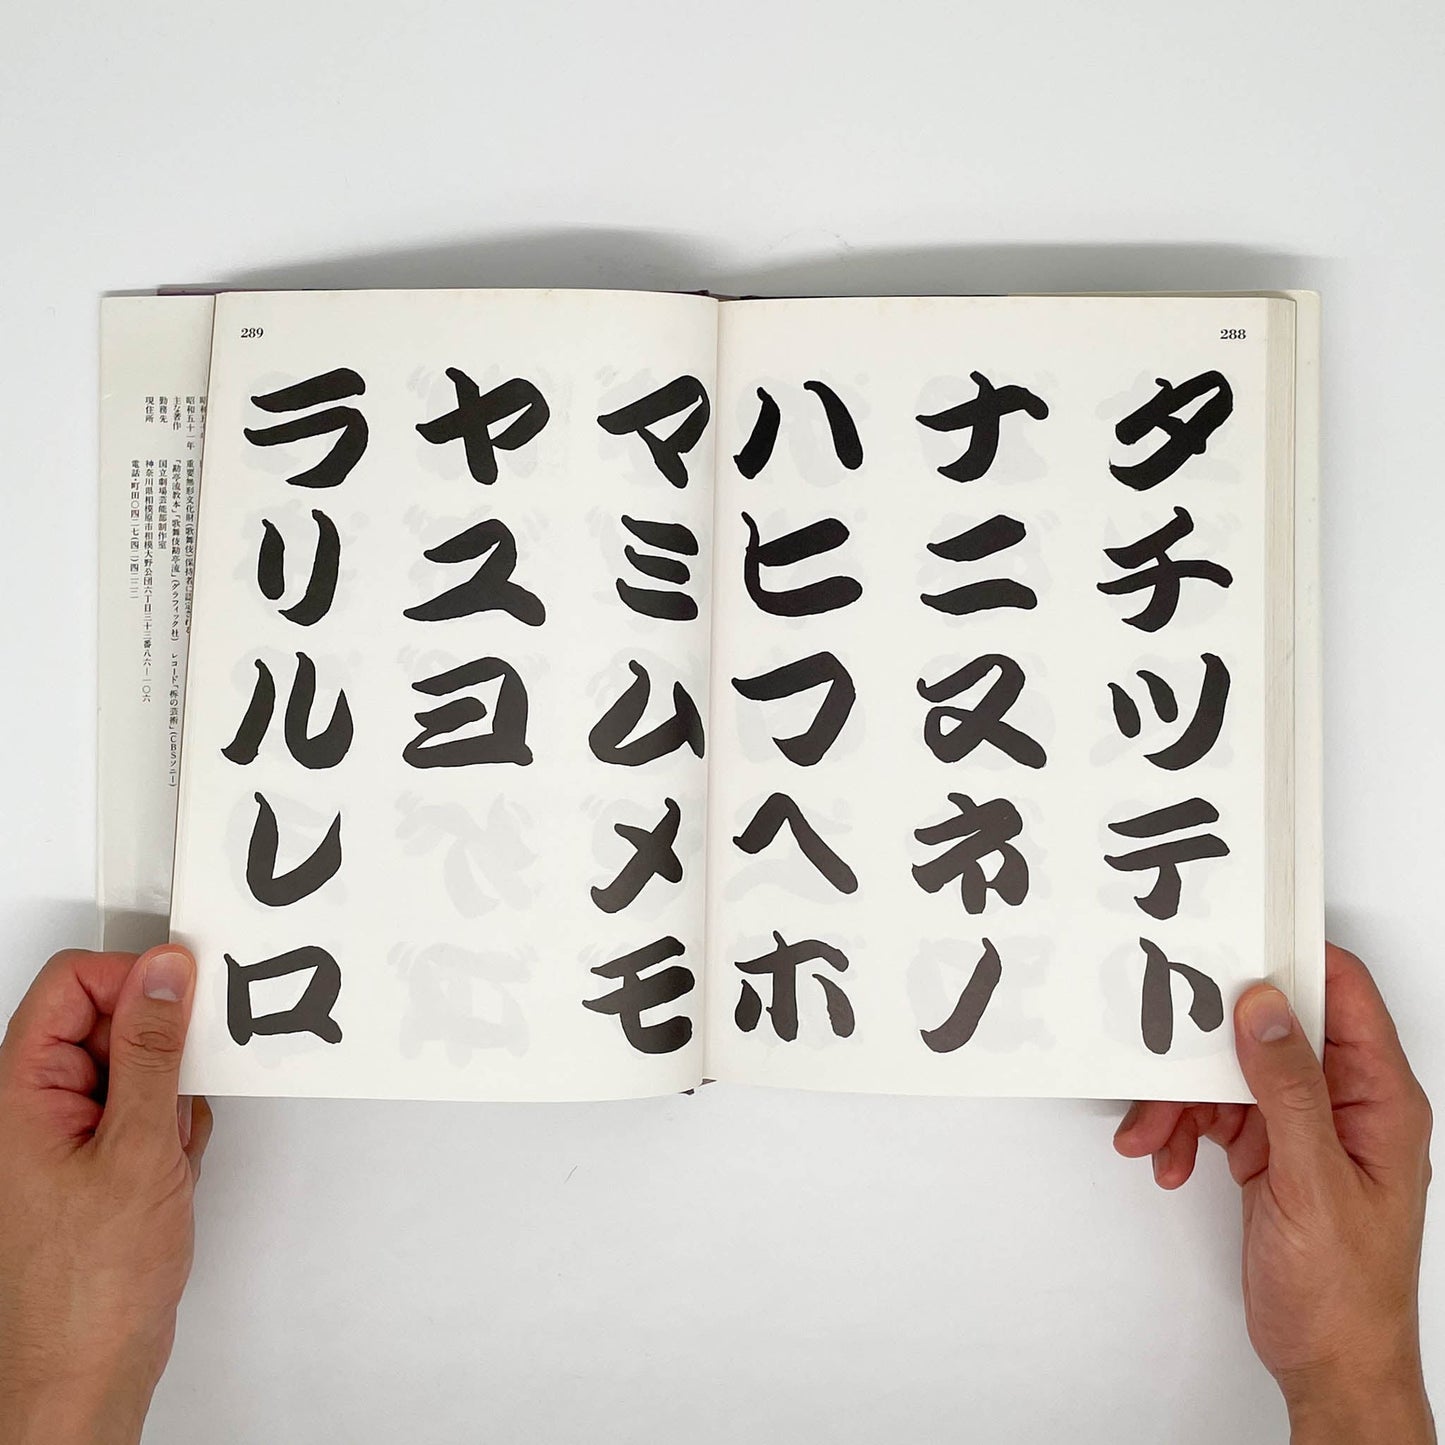 288
タチツテト
ナニヌネノ
ハヒフヘホ
289
マミムメモ
ヤユヨ
ラリルレロ
昭和五十一年 重要無形文化財(歌舞伎)保持者に認定される
主な著作 「勘亭流教本」「歌舞伎勘亭流」(グラフィック社) レコード「柝の芸術」(CBSソニー)
勤務先 国立劇場芸能部制作室
現住所 神奈川県相模原市相模大野公団六丁目三十三番八六―一〇六
電話・町田〇四二七(四二)四二二二